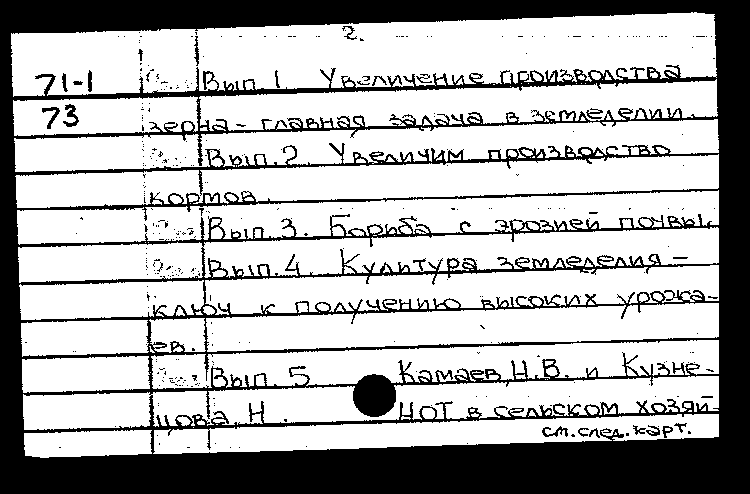 2.
71-1 Вып. 1 Увеличение производства
73 зерна - главная задача в земледелии.
Вып. 2. Увеличим производство
кормов.
Вып. 3. Борьба с эрозией почвы.
Вып. 4. Культура земледелия -
ключ к получению высоких урожа-
ев.
Вып. 5 Камаев, Н.В. и Кузне-
цова, Н. НОТ в сельском хозяй-
см. след. карт.